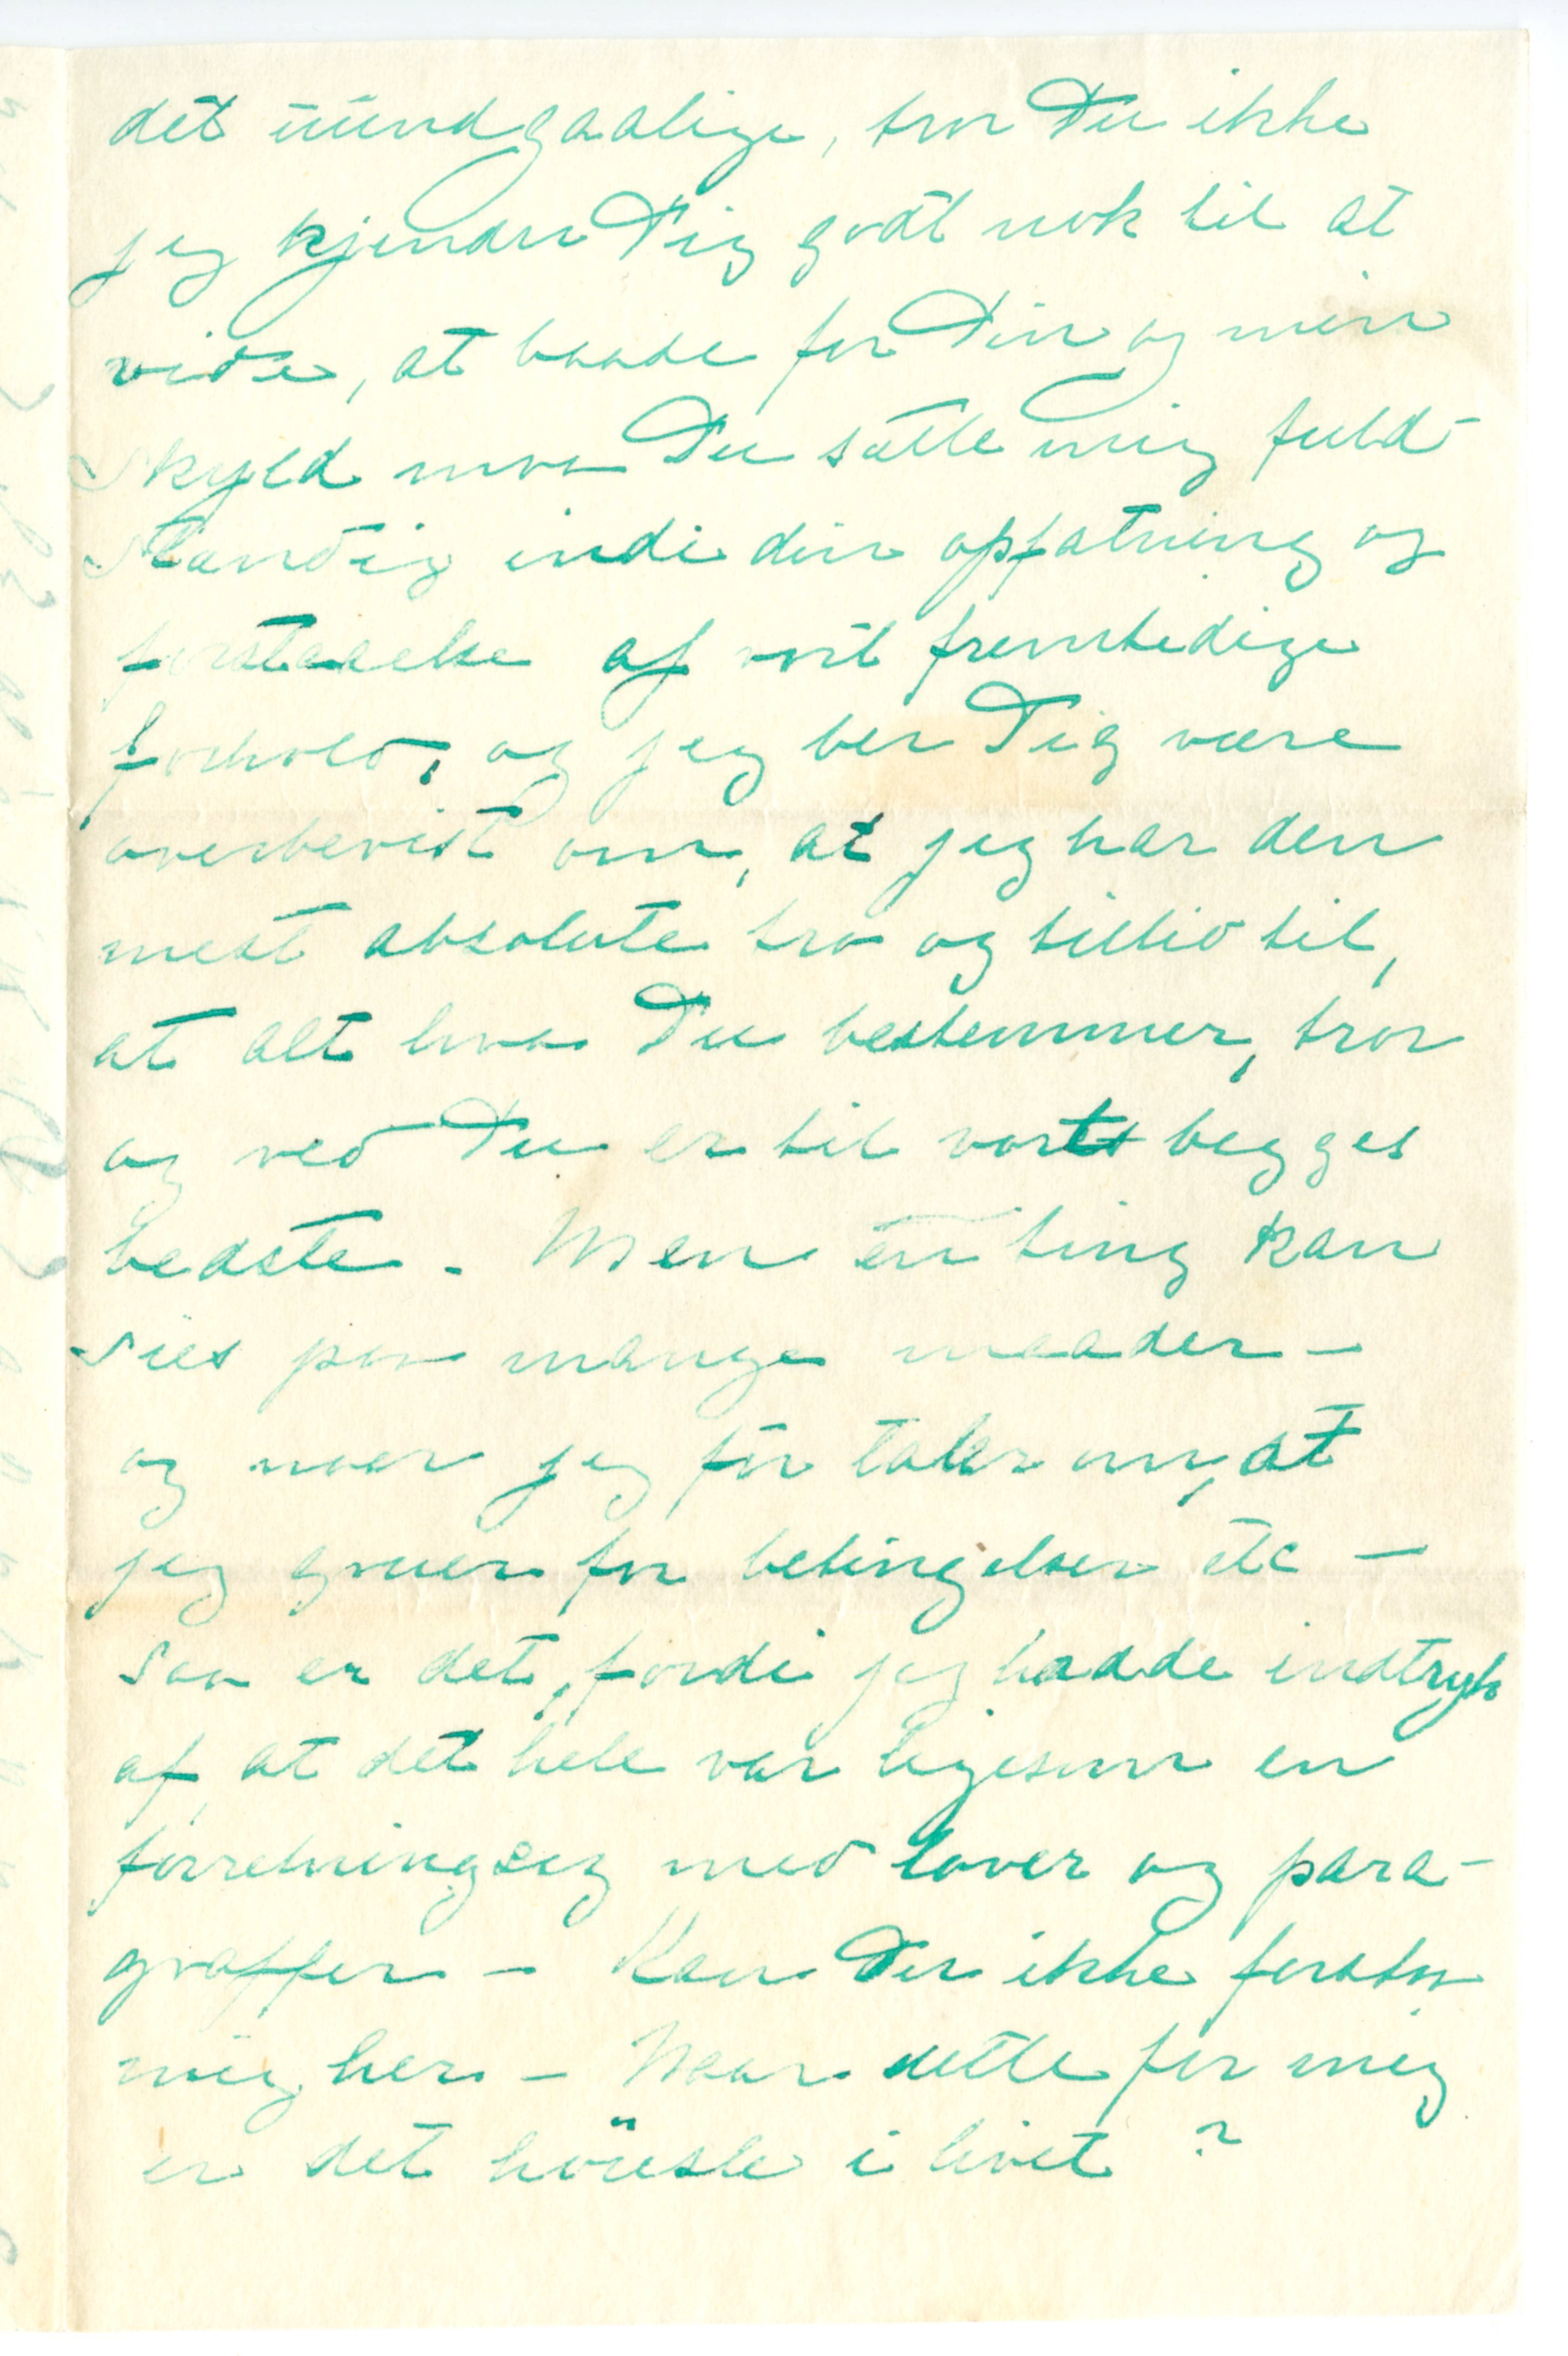 det uundgaalige, tror Du ikke
jeg kjender Dig godt nok til at
vide, at baade for Din og min
skyld maa Du sætte mig fuld-
stændig ind i din opfatning og
forstaaelse af vort fremtidige
forhold, og jeg ber Dig være
overbevist om, at jeg har den
mest absolute tro og tillid til,
at alt hva Du bestemmer, tror
og ved Du er til vort begges
bedste. - Men en ting kan
sies paa mange maader -
og naar jeg før taler om, at
jeg gruer for betingelser etc -
saa er det, fordi jeg hadde indtryk
af, at det hele var ligesom en
forretningseig med lover og para-
graffer - Kan Du ikke forstaa
mig her - Naar dette for mig
er det høieste i livet ?